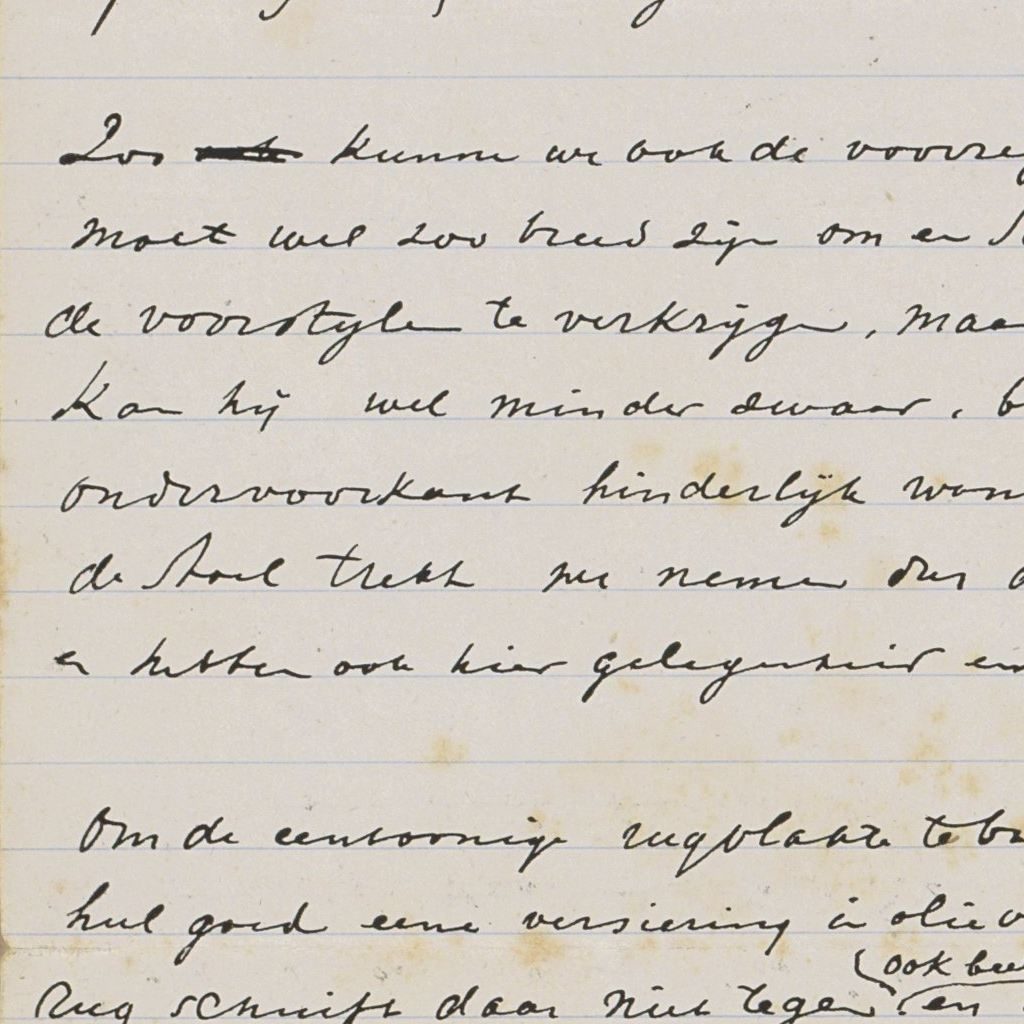 Zoo kunnen we ook de voorre
moet wel zoo breed zijn om er
de voorstylen te verkrijgen, maa
Kan hij wel minder zwaar, b
ondervoorkant hinderlijk won
de stoel trekt we nemen dus
en hebben ook hier gelegenheid en
Om de eentoonige rugvlakte te br
heel goed eene versiering in olie v
ook bee
Rug schuift daar niet tegen en